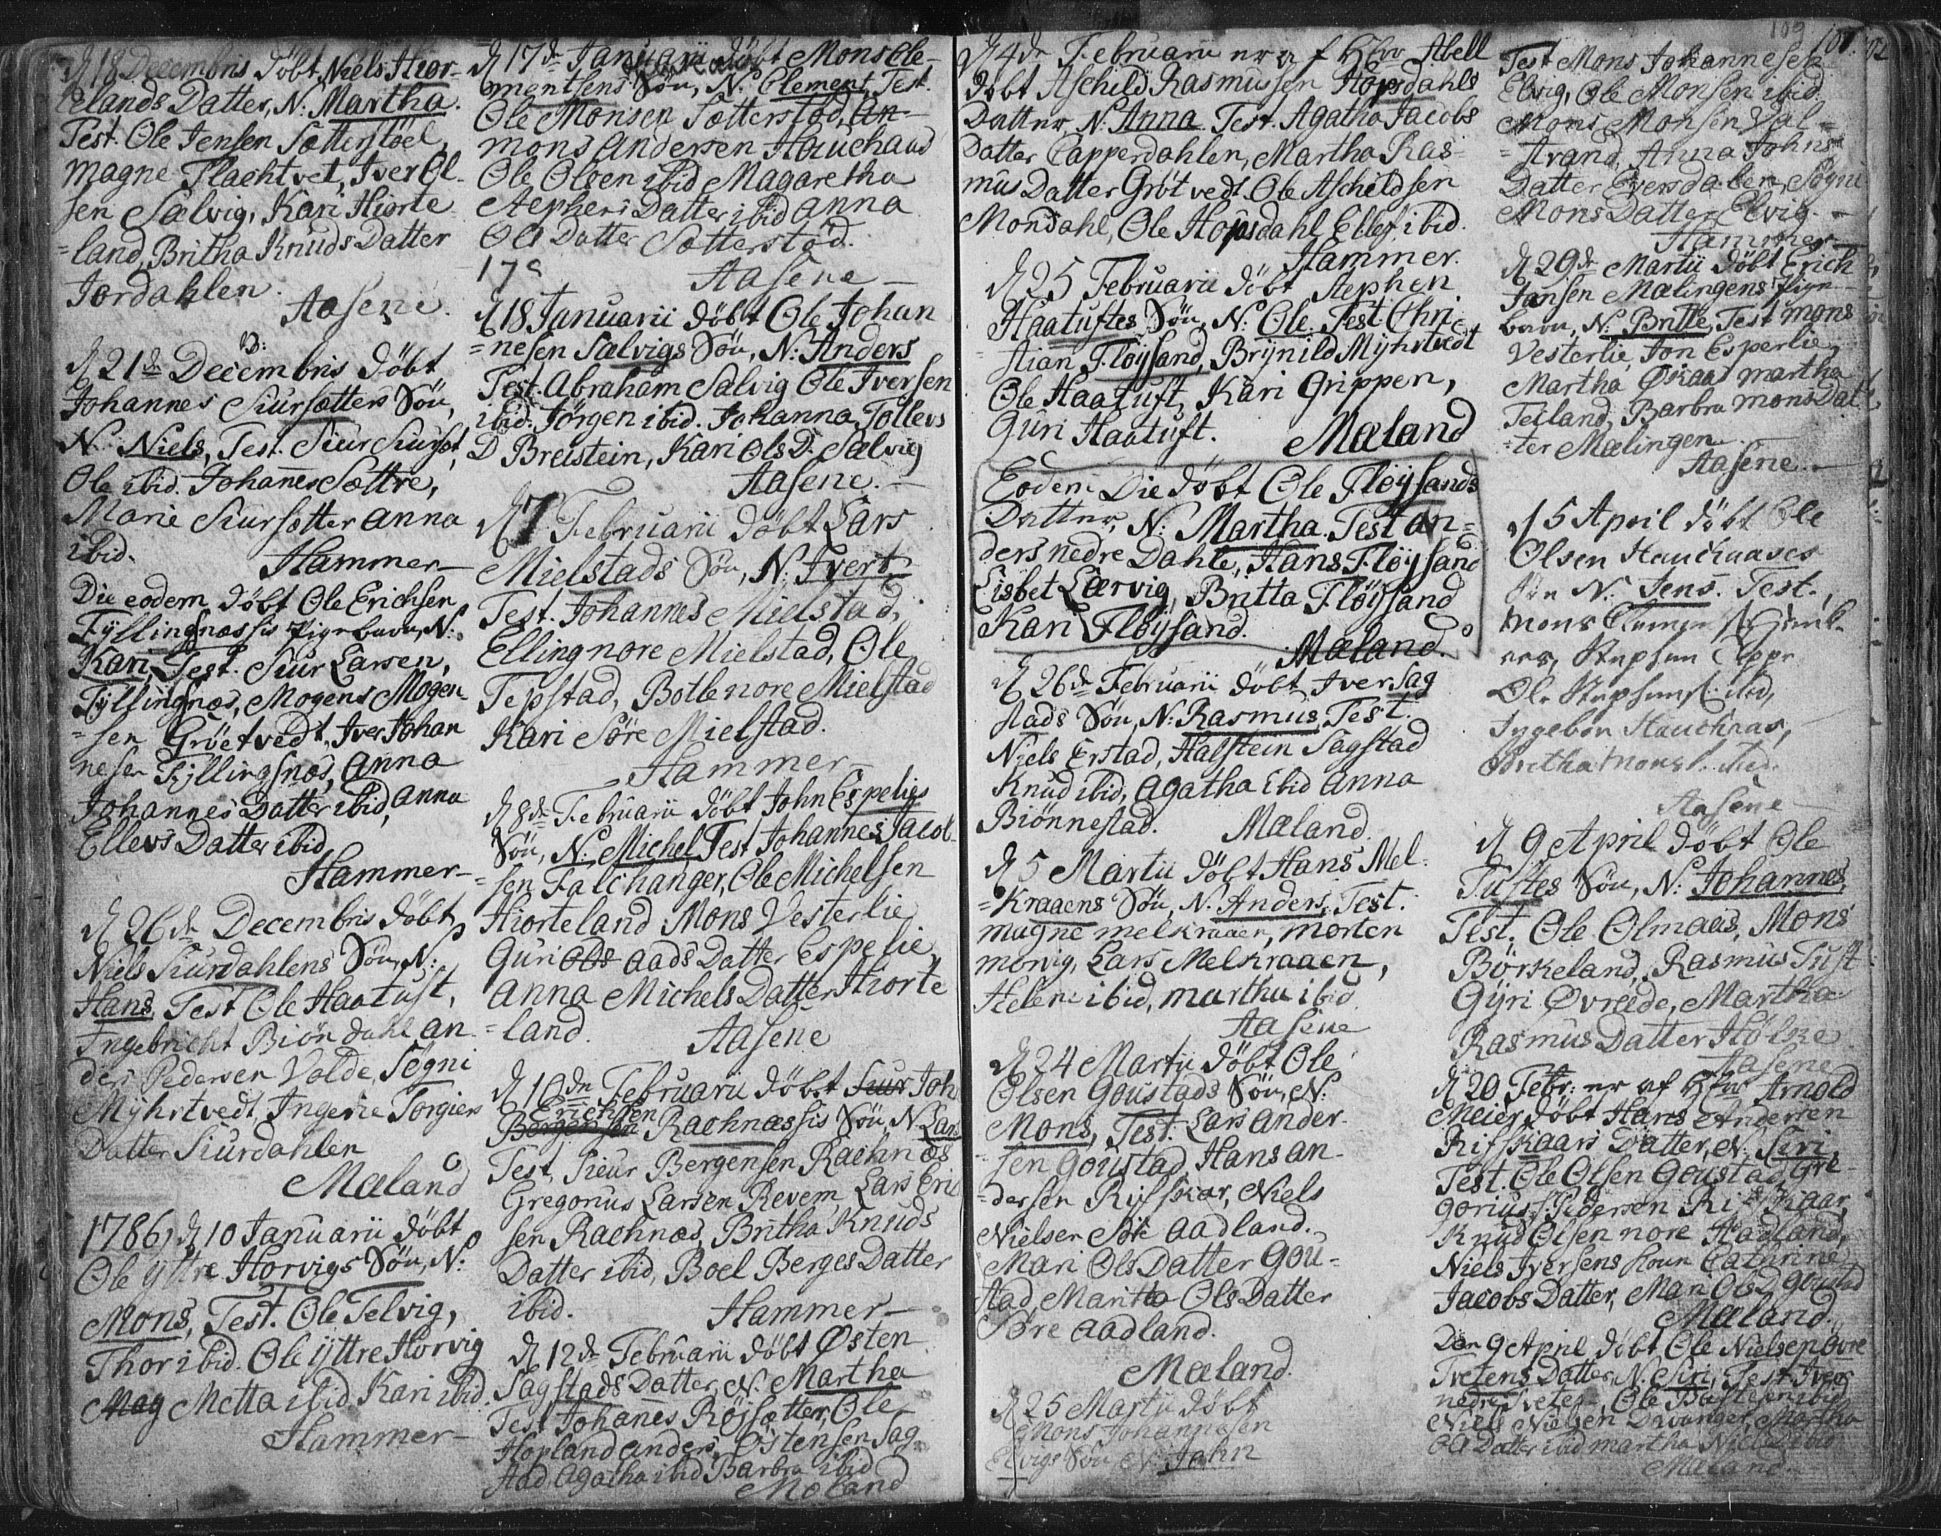 d 18 Decembris döbt Niels Hior-
elands Datter, N: Martha.
Test. Ole Jensen Sætterstöel,
Magne Flachtvet, Iver Ol-
sen Salvig, Kari Hiorte
=land, Britha Knuds Datter
Jordahlen.
Aasene.
d 21de Decembris döbt
Johannes Siursætters Sön,
N: Niels, Test. Siur Siursot,
Ole ibid. Johanes Sættre,
Marie Siursætter Anna
ibid.
Hammer
Die eodem döbt Ole Erichsen
Fyllingsnæssis Pigebarn, N:
Kari, Test. Siur Larsen,
Fyllingsnæs, Mogens Mogen
=sen Gröetvedt, Iver Johan
nesen Fyllingsnæs, Anna
Johannes Datter ibid, Anna
Ellevs Datter ibid
Hammer
d 26de Decembris döbt
Niels Siurdahlens Sön, N:
Hans, Test Ole Haatuft,
Ingebricht Biörndahl An
ders Pedersen Volde, Søgni
Myhrtvedt, Ingerie Torgiers
Datter Siurdahlen
Mæland
1786, d 10 Januarii döbt
Ole yttre Horvigs Sön, N:
Mons, Test. Ole Telvig,
Thor ibid. Ole yttre Horvig
Mag Metta ibid, Kari ibid.
Hammer
d 17de Januarii döbt Mons Cle-
mentsens Sön, N: Clement, Test.
Ole Monsen Sætterstöd, An-
mons Andersen Hauchaas
Ole Olsen ibid Magaretha
Stephens Datter ibid Anna
Ols Datter Sætterstöd.
17
Aasene
d 18 Januarii döbt Ole Johan
=nesen Salvigs Sön, N: Anders
Test. Abraham Salvig Ole Iversen
ibid. Jörgen ibid. Johanna Tollevs
D Breistein, Kari Ols D: Salvig
Aasene.
d 7 Februarii döbt Lars
Mielstads Sön, N: Ivert
Test. Johannes Mielstad,
Elling nore Mielstad, Ole
Tepstad, Botle nore Mielstad
Kari Söre Mielstad.
Hammer
d 8de Februarii döbt John Espelies
Sön, N: Michel Test Johannes Jacob-
=sen Falchanger, Ole Michelsen
Hiorteland Mons Vesterlie
Guri Ols Aads Datter Espelie,
Anna Michels Datter Hiorte
=land.
Aasene
d 10de Februarii döbt Siur Joh
Erichsen
Bergersen Rachnæssis Sön N Lars
Test. Sieur Bergensen Rachnæs
Gregorius Larsen Revem, Lars Eric
sen Rachnæs, Britha Knuds
Datter ibid, Boel Berges Datter
ibid.
Hammer
d 12de Februarii döbt Østen
Sagstads Datter, N: Martha
Test Johanes Röjsætter, Ole
Hopland Anders Ostensen Sag
stad Agatha ibid Barbra ibid
Mæland
d 4de Februarii er af HErr Abell
döbt Aschild Rasmussen Hopsdahls
Datter N: Anna. Test. Agatha Jacobs
datter Capperdahlen, Martha Ras-
mus Datter Gröt vedt Ole Aschildsen
Mondahl, Ole Hopsdahl Ellef ibid.
Hammer.
d 25 Februarii döbt Stephen
Haatuftes Sön, N: Ole. Test Chri-
stian Flöysand, Brynild Myhrtvedt
Ole Haatuft, Kari Grippen,
Guri Haatuft.
Mæland
Eodem Die döbt Ole Flöysands
Datter, N: Martha. Test An=
ders nedre Dahle, Hans Flöysand
Lisbet Lærvig, Britta Flöysand
Kari Flöysand.
Mæland.
d 26de Februarii döbt Iver Sag
stads Sön, N: Rasmus, Test.
Niels Erstad, Halstein Sagstad
Knud ibid, Agatha ibid Anna
Biönnestad.
Mæland.
d 5 Martii döbt Hans Mel-
=Kraaens Sön, N: Anders, Test.
Magne Melkraaen, Morten
Morvig, Lars Melkraaen,
Helene ibid, Martha ibid
Aasene
d 24 Martii döbt Ole
Olsen Goustads Sön, N:
Mons, Test. Lars Ander-
sen Goustad, Hans An-
=dersen Risskar, Niels
Nielsen Söre Aadland.
Mari Ols Datter Gou-
stad Marita Ols Datter
Söre Aadland.
Mæland.
d 25 Martii döbt
Mons Johannesen
Elvigs Sön N: John
109 107
Test Mons Johannesen
Elvig, Ole Monsen ibid.
Mons Monsen Val=
=strand, Anna Johns
Datter Eversdalen, Søgni
Mons Datter Elvig.
Hammer
d 29de Martii döbt Erich
Jansen Mælingens Pige-
barn, N: Britte, Test Mons
Vesterlie, Jon Esperlie,
Martha Økaas Martha
Teiland, Barbra Mons Dat
=ter Mælingen
Aasene.
d 5 April döbt Ole
Olsen Hauchaases
Sön N: Jens. Test.,
Mons Clemen
Stephen
Ole Stephens. ibid,
Ingebor Hauchaas,
Britha Mons. ibid.
Aasene
d 9 April döbt Ole
Tuftes Sön, N: Johannes,
Test. Ole Olmaas, Mons
Börkeland, Rasmus Tuft
Gyri Øvreede, Martha
Rasmus Datter Holske
Aasene
d 20 Febr: er af HErr Arnold
Meier döbt Hans Andersen
Risskaars Datter, N: Siri,
Test. Ole Olsen Goustad, Gre-
gorius Pedersen Risskaar,
Knud Olsen nore Hadland,
Niels Iversens Koun Cathrine
Jacobs Datter, Mari Ols D Goustad
Mæland.
Den 9 April döbt Ole Nielsen Øvre
Tvetens Datter, N: Siri, Test Iver
nedre Tveten, Ole Bastesen ibid
Niels Nielsen Davanger, Martha
Ols Datter ibid Martha Niels D ibid
Mæland